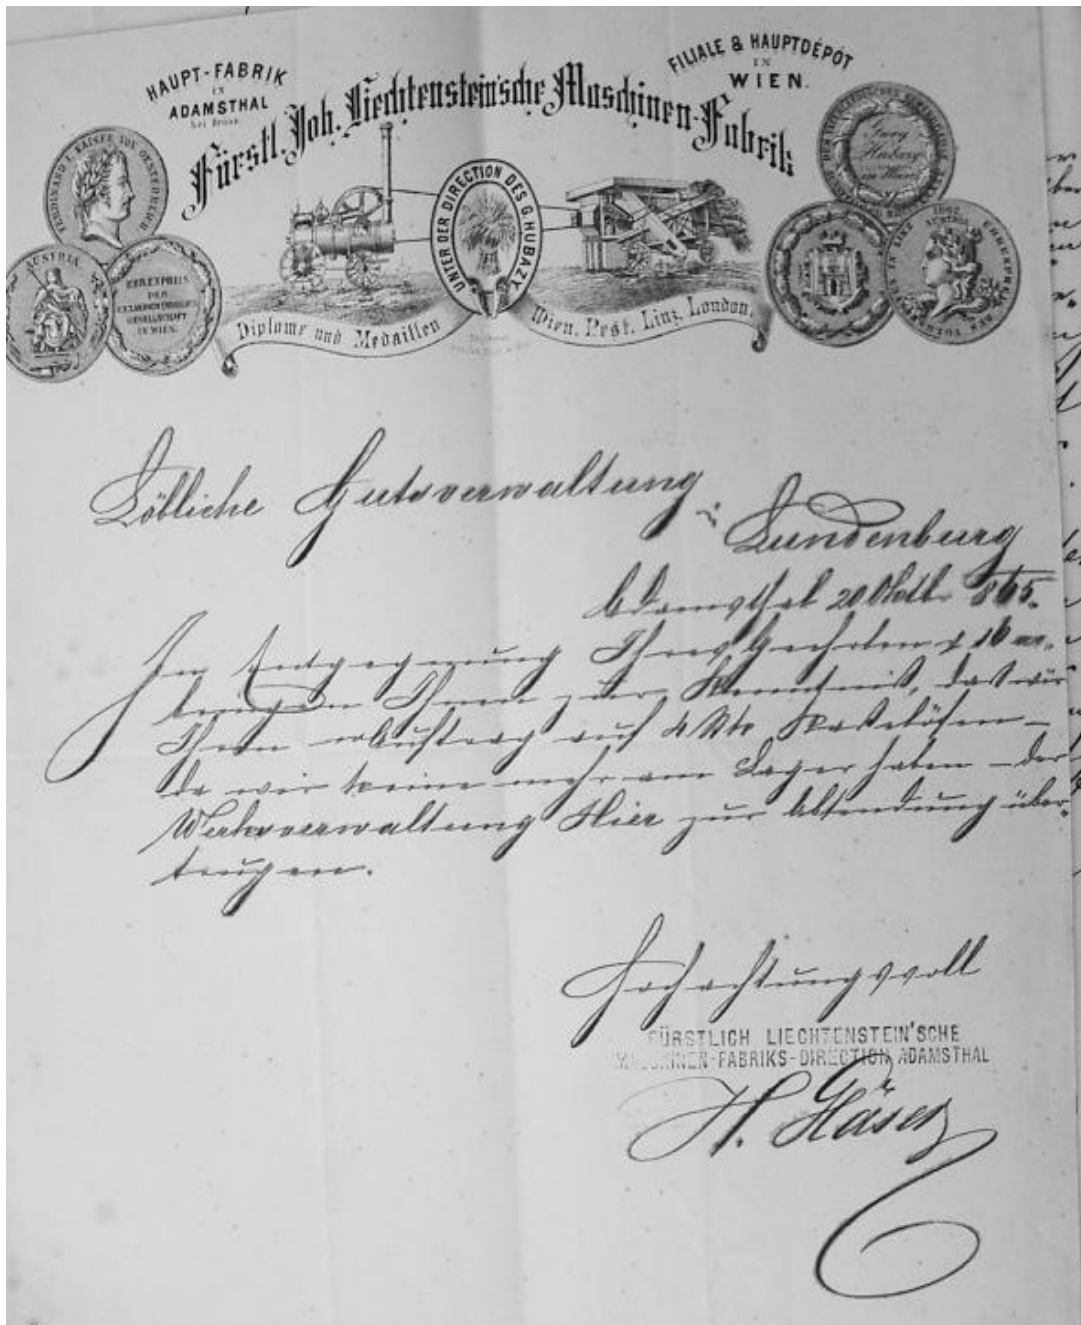 HAUPT-FABRIK
IN
ADAMSTHAL
bei Brünn
FILIALE & HAUPTDÉPÔT
IN
WIEN.
Fürstl. Joh. Liechtenstein'sche Maschinen-Fabrik
UNTER DER DIRECTION DES G. HUBAZY
FERDINAND I. KAISER VON OESTERREICH
AUSTRIA
EHRENPREIS
DER
GESELLSCHAFT
IN WIEN.
Georg
Hubazy
in Wien
Diplome und Medaillen
Wien, Pest, Linz, London.
Löbliche Gutsverwaltung
in Lundenburg
Adamsthal 20 Octb. 865.
In Entgegnung Ihres Geehrten v 16 er.
bringen Ihnen zur Kenntniß, daß wir
Ihren Auftrag auf 4 Stk
da wir keine mehr am Lager haben – der
Werksverwaltung Hier zur Absendung über-
trugen.
Hochachtungsvoll
FÜRSTLICH LIECHTENSTEIN'SCHE
MASCHINEN-FABRIKS-DIRECTION ADAMSTHAL